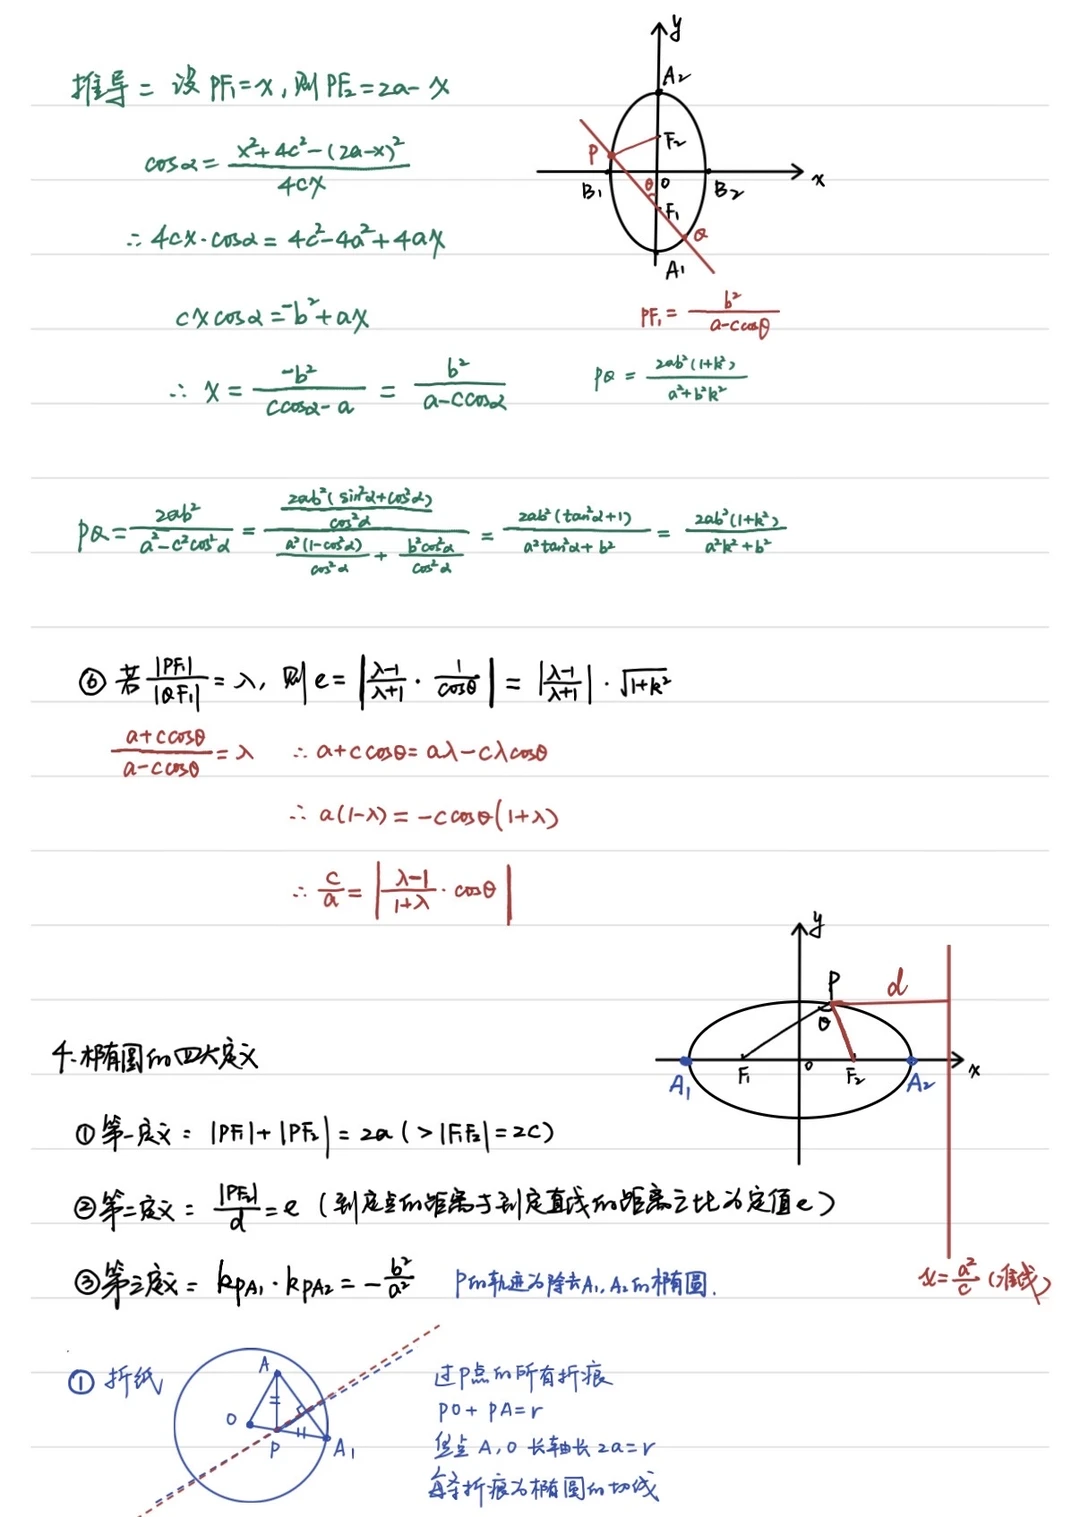 推导：设PF₁=x，则PF₂=2a-x
cosα=(x²+4c²-(2a-x)²)/(4cx)
∴4cx·cosα=4c²-4a²+4ax
cxcosα=-b²+ax
∴x=(-b²)/(ccosα-a)=b²/(a-ccosα)
y
A₂
P
F₂
B₁
θ
O
B₂
x
F₁
Q
A₁
PF₁=b²/(a-ccosθ)
PQ=2ab²(1+k²)/(a²+b²k²)
PQ=2ab²/(a²-c²cos²α)=(2ab²(sin²α+cos²α)/cos²α)/(a²(1-cos²α)/cos²α+b²cos²α/cos²α)=2ab²(tan²α+1)/(a²tan²α+b²)=2ab²(1+k²)/(a²k²+b²)
⑥若|PF₁|/|QF₁|=λ，则e=|(λ-1)/(λ+1)·1/cosθ|=|(λ-1)/(λ+1)|·√(1+k²)
(a+ccosθ)/(a-ccosθ)=λ ∴a+ccosθ=aλ-cλcosθ
∴a(1-λ)=-ccosθ(1+λ)
∴c/a=|(λ-1)/(1+λ)·cosθ|
y
P
d
θ
F₁
O
F₂
A₁
A₂
x
x=a²/c(准线)
4.椭圆的四大定义
①第一定义：|PF₁|+|PF₂|=2a(>|F₁F₂|=2c)
②第二定义：|PF₂|/d=e（到定点的距离于到定直线的距离之比为定值e）
③第三定义：kPA₁·kPA₂=-b²/a² P的轨迹为除去A₁，A₂的椭圆.
①折纸
A
O
P
A₁
过P点的所有折痕
PO+PA=r
焦点A,O 长轴长2a=r
每条折痕为椭圆的切线